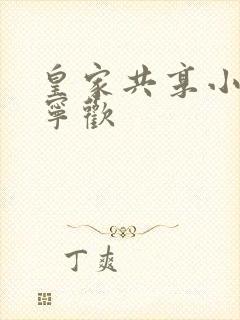 皇家共享小
寧歡
丁爽